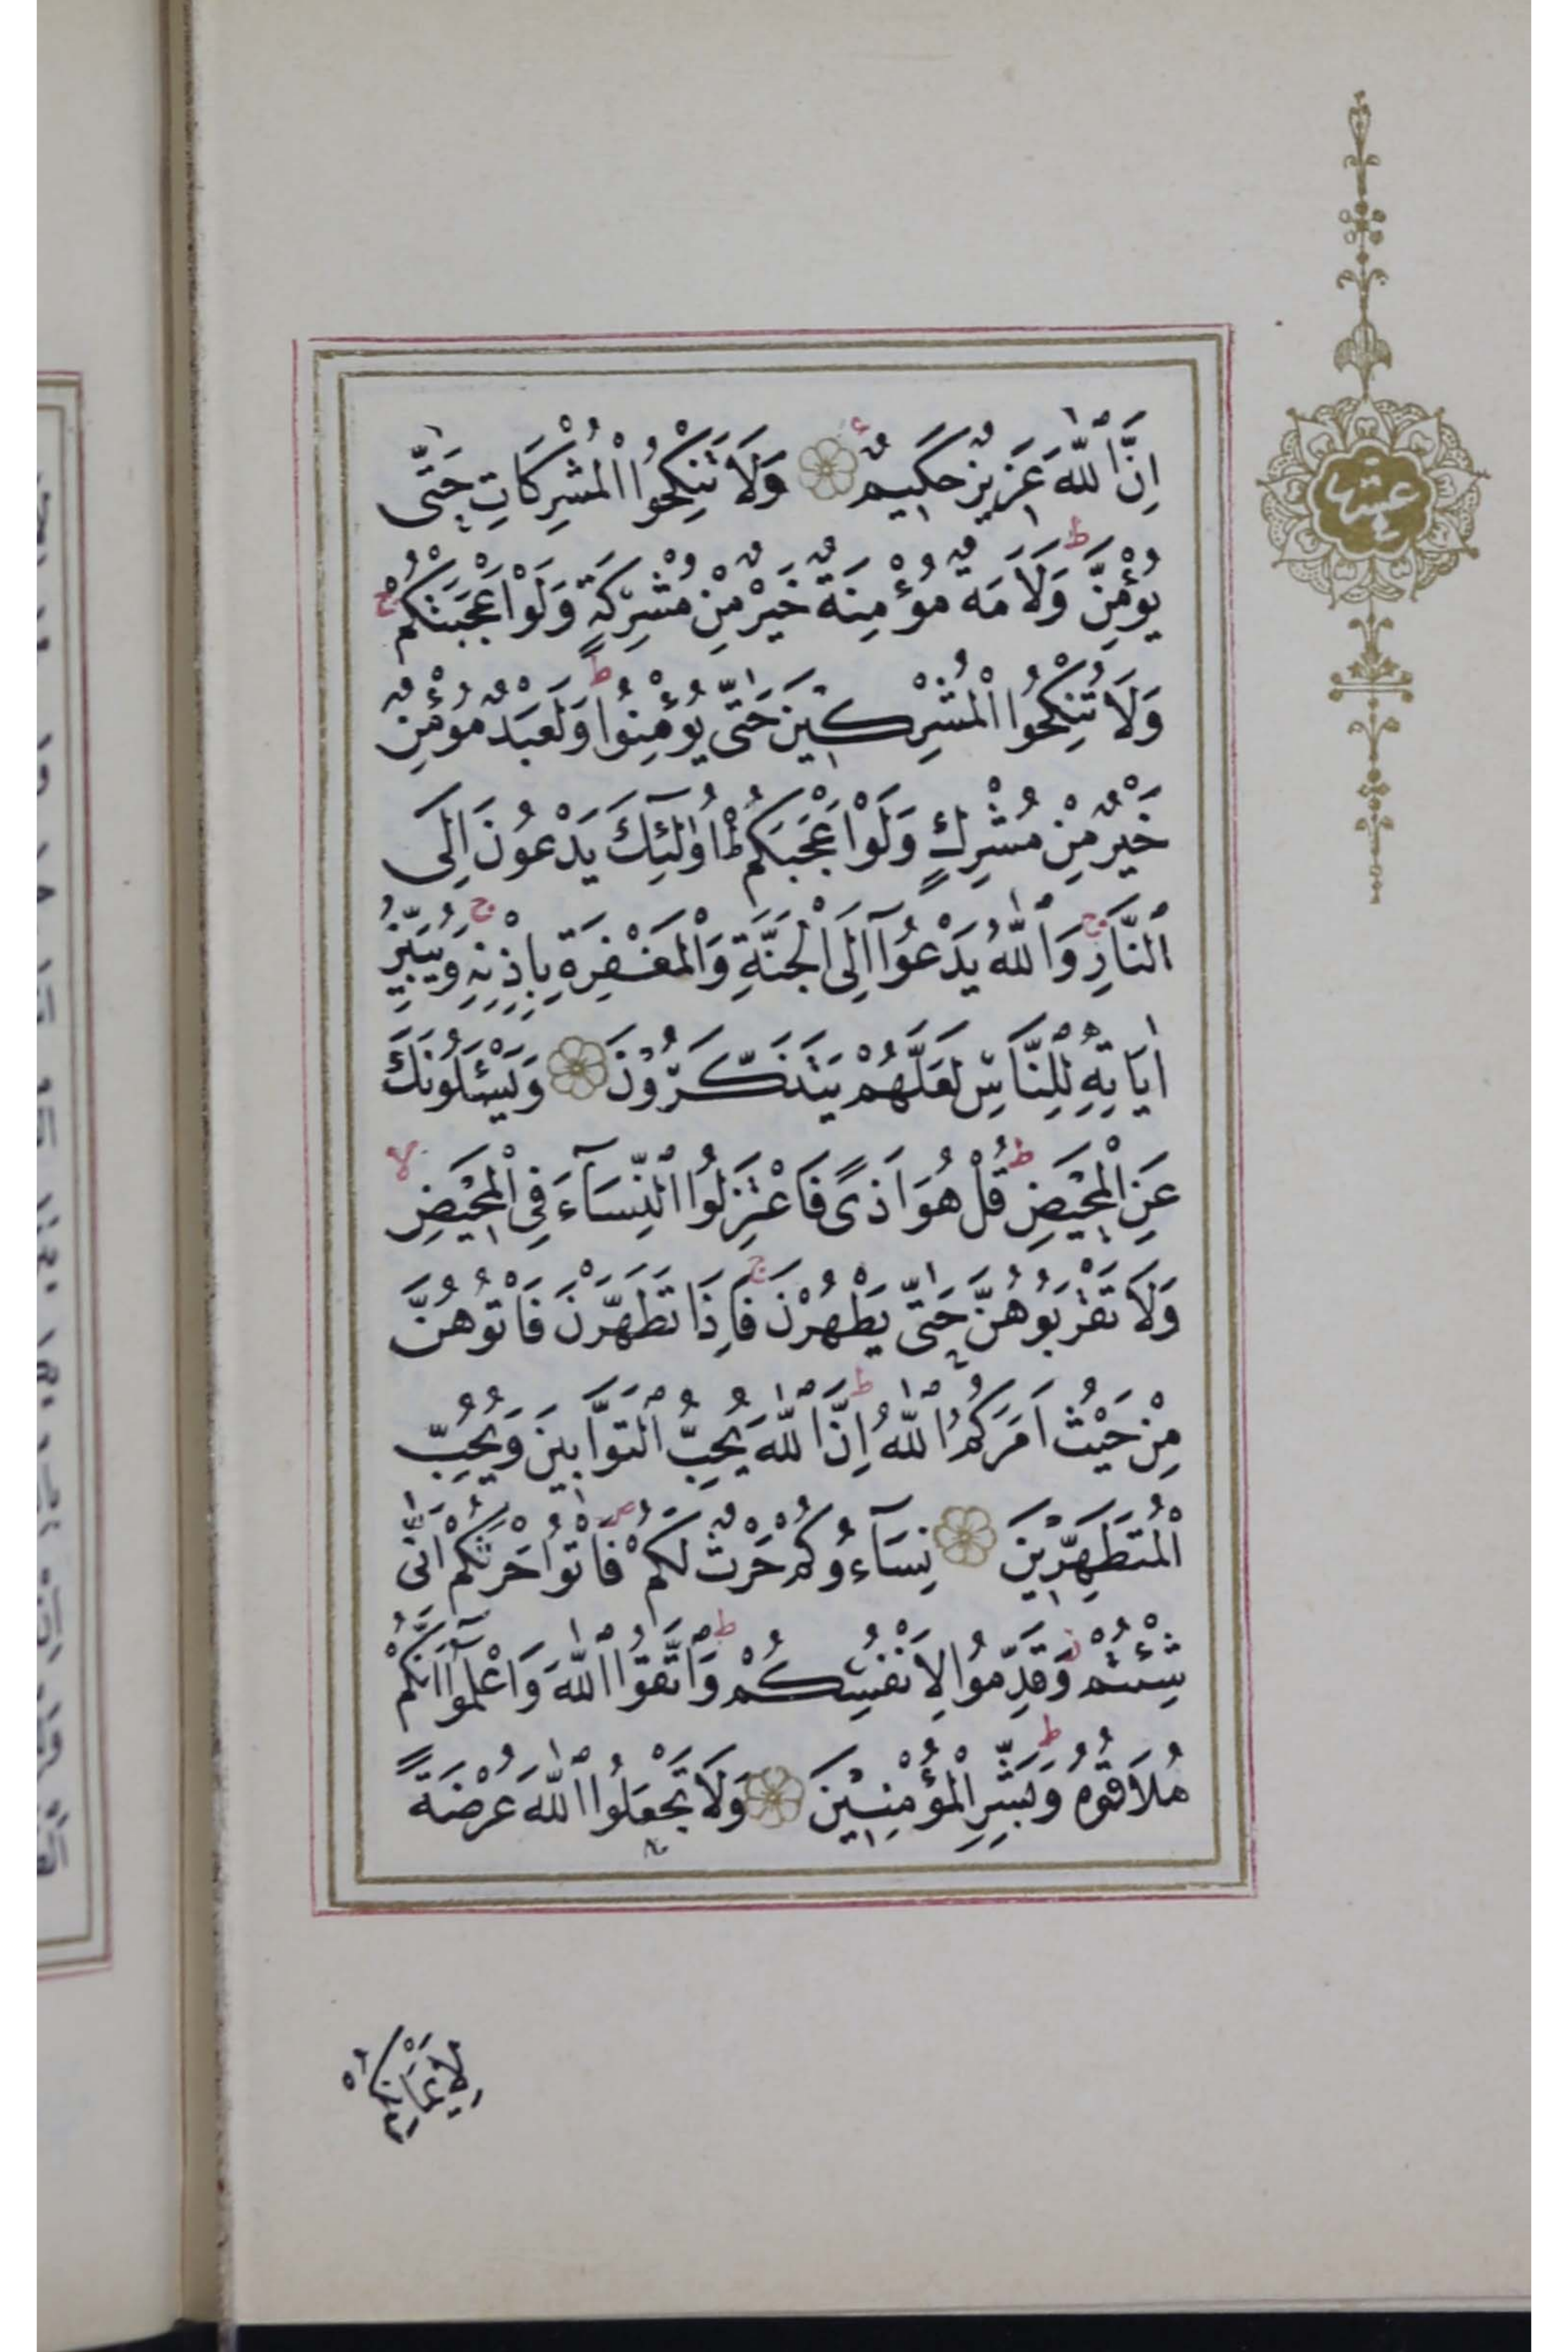 اِنَّ ٱللّٰهَ عَزِيزٌ حَكِيمٌ ۝ وَلَا تَنْكِحُوا الْمُشْرِكَاتِ حَتّٰى
يُؤْمِنَّ ط وَلَاَمَةٌ مُؤْمِنَةٌ خَيْرٌ مِنْ مُشْرِكَةٍ وَلَوْ اَعْجَبَتْكُمْ ج
وَلَا تُنْكِحُوا الْمُشْرِكِينَ حَتّٰى يُؤْمِنُوا ط وَلَعَبْدٌ مُؤْمِنٌ
خَيْرٌ مِنْ مُشْرِكٍ وَلَوْ اَعْجَبَكُمْ ط اُولٰئِٓكَ يَدْعُونَ اِلَى
ٱلنَّارِ ج وَٱللّٰهُ يَدْعُوٓا اِلَى الْجَنَّةِ وَالْمَغْفِرَةِ بِاِذْنِهِ ج وَيُبَيِّنُ
اٰيَاتِهِ لِلنَّاسِ لَعَلَّهُمْ يَتَذَكَّرُونَ ۝ وَيَسْـَٔلُونَكَ
عَنِ الْمَحِيضِ ط قُلْ هُوَ اَذًى فَاعْتَزِلُوا ٱلنِّسَآءَ فِى الْمَحِيضِ لا
وَلَا تَقْرَبُوهُنَّ حَتّٰى يَطْهُرْنَ ج فَاِذَا تَطَهَّرْنَ فَاْتُوهُنَّ
مِنْ حَيْثُ اَمَرَكُمُ ٱللّٰهُ ط اِنَّ ٱللّٰهَ يُحِبُّ ٱلتَّوَّابِينَ وَيُحِبُّ
الْمُتَطَهِّرِينَ ۝ نِسَآءُوكُمْ حَرْثٌ لَكُمْ ص فَاْتُوا حَرْثَكُمْ اَنّٰى
شِئْتُمْ ز وَقَدِّمُوا لِاَنْفُسِكُمْ ط وَٱتَّقُوا ٱللّٰهَ وَاعْلَمُوٓا اَنَّكُمْ
مُلَاقُوهُ ط وَبَشِّرِ الْمُؤْمِنِينَ ۝ وَلَا تَجْعَلُوا ٱللّٰهَ عُرْضَةً
لِاَيْمَانِكُمْ